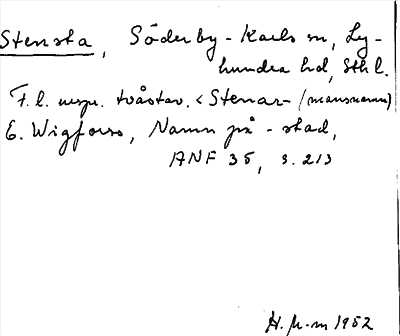 Stensta, Söderby-Karls sn, Ly-
hundra hd, Sthl.
F.l. urspr. tvåstav. < Stenar- (mansnamn)
E. Wigforss, Namn på -stad,
ANF 35, s. 213
1952